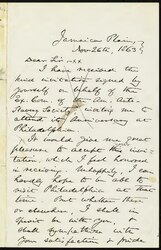 Jamaica Plain,
Nov. 26th, 1863.
Dear Sir:
I have received the
kind invitation signed by
yourself on behalf of the
Ex. Com. of the Am. Anti-
Slavery Society, inviting me to
attend its Anniversary at
Philadelphia.
It would give me great
pleasure to accept this invi-
tation which I feel honored
in receiving. Unhappily, I can
hardly hope to be able to
visit Philadelphia at that
time. But whether there
or elsewhere, I shall in
spirit be with you, &
shall sympathize with
your satisfaction & pride